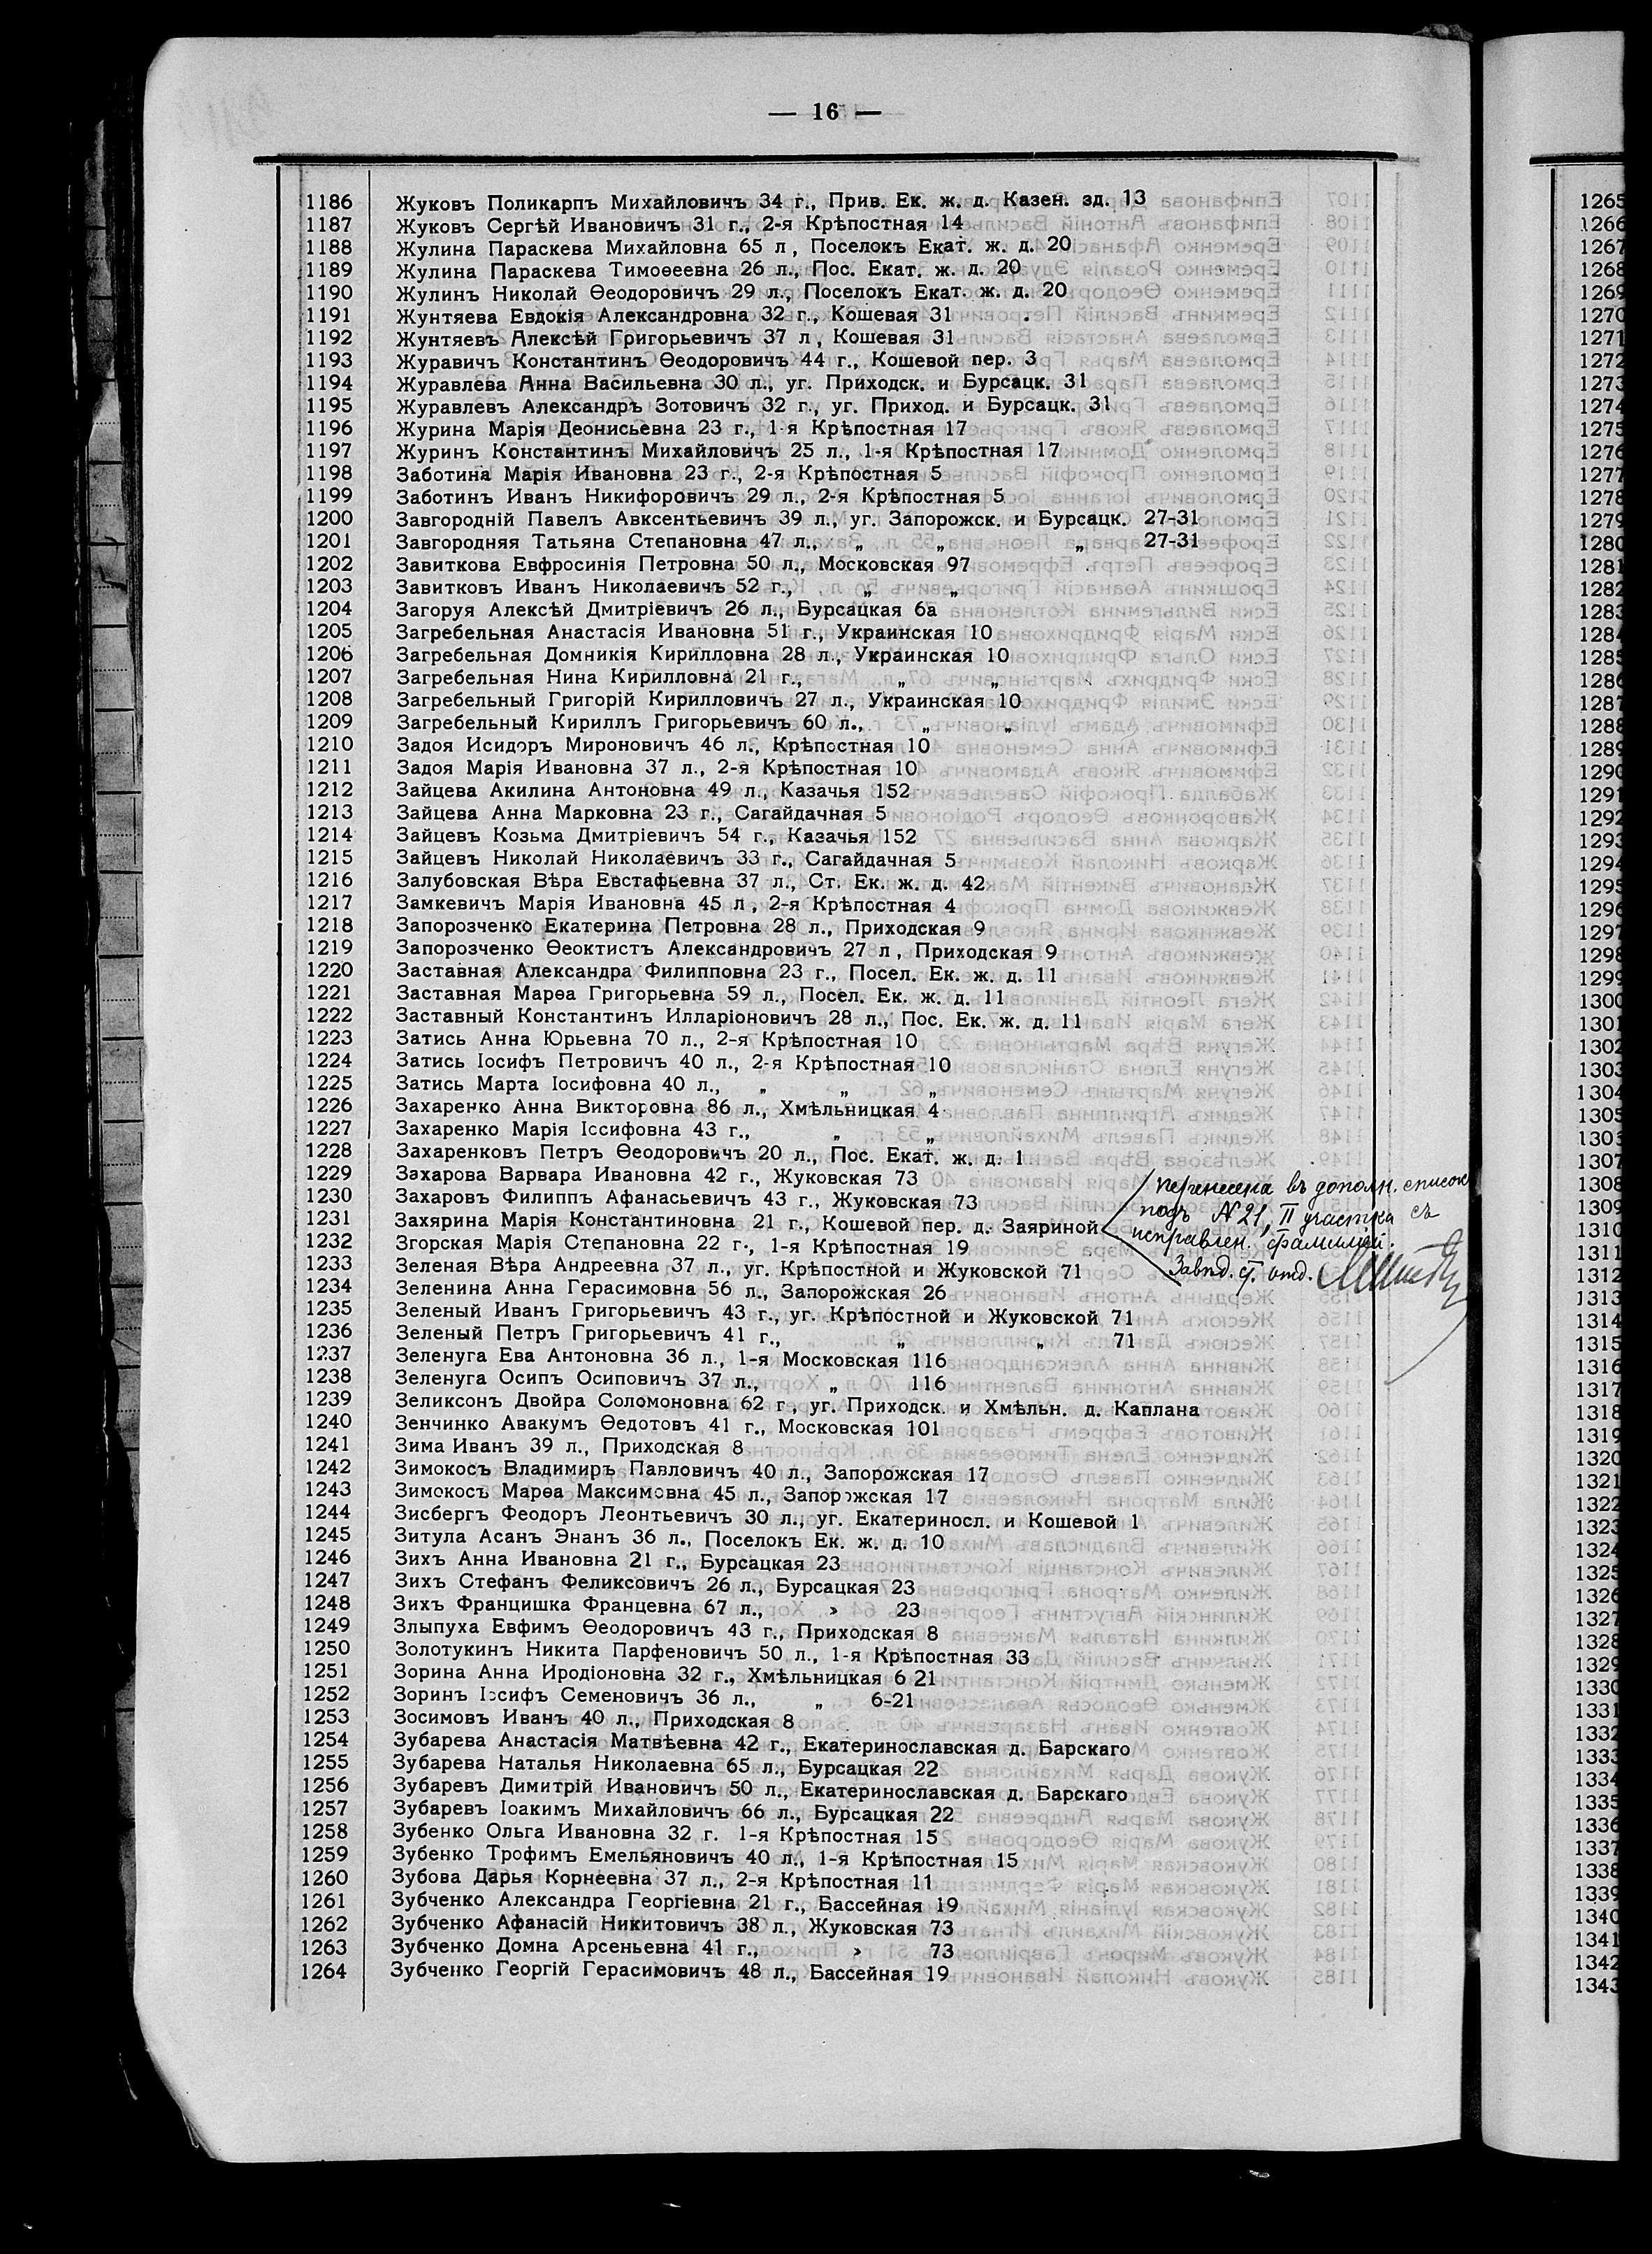 — 16 —
1186 Жуковъ Поликарпъ Михайловичъ 34 г., Прив. Ек. ж. д. Казен. зд. 13
1187 Жуковъ Сергѣй Ивановичъ 31 г., 2-я Крѣпостная 14
1188 Жулина Параскева Михайловна 65 л, Поселокъ Екат. ж. д. 20
1189 Жулина Параскева Тимоѳеевна 26 л., Пос. Екат. ж. д. 20
1190 Жулинъ Николай Ѳеодоровичъ 29 л., Поселокъ Екат. ж. д. 20
1191 Жунтяева Евдокія Александровна 32 г., Кошевая 31
1192 Жунтяевъ Алексѣй Григорьевичъ 37 л, Кошевая 31
1193 Журавичъ Константинъ Ѳеодоровичъ 44 г., Кошевой пер. 3
1194 Журавлева Анна Васильевна 30 л., уг. Приходск. и Бурсацк. 31
1195 Журавлевъ Александръ Зотовичъ 32 г., уг. Приход. и Бурсацк. 31
1196 Журина Марія Деонисьевна 23 г., 1-я Крѣпостная 17
1197 Журинъ Константинъ Михайловичъ 25 л., 1-я Крѣпостная 17
1198 Заботина Марія Ивановна 23 г., 2-я Крѣпостная 5
1199 Заботинъ Иванъ Никифоровичъ 29 л., 2-я Крѣпостная 5
1200 Завгородній Павелъ Авксентьевичъ 39 л., уг. Запорожск. и Бурсацк. 27-31
1201 Завгородняя Татьяна Степановна 47 л., „ „ „ 27-31
1202 Завиткова Евфросинія Петровна 50 л., Московская 97
1203 Завитковъ Иванъ Николаевичъ 52 г., „ „
1204 Загоруя Алексѣй Дмитріевичъ 26 л., Бурсацкая 6а
1205 Загребельная Анастасія Ивановна 51 г., Украинская 10
1206 Загребельная Домникія Кирилловна 28 л., Украинская 10
1207 Загребельная Нина Кирилловна 21 г., „ „
1208 Загребельный Григорій Кирилловичъ 27 л., Украинская 10
1209 Загребельный Кириллъ Григорьевичъ 60 л., „ „
1210 Задоя Исидоръ Мироновичъ 46 л., Крѣпостная 10
1211 Задоя Марія Ивановна 37 л., 2-я Крѣпостная 10
1212 Зайцева Акилина Антоновна 49 л., Казачья 152
1213 Зайцева Анна Марковна 23 г., Сагайдачная 5
1214 Зайцевъ Козьма Дмитріевичъ 54 г., Казачья 152
1215 Зайцевъ Николай Николаевичъ 33 г., Сагайдачная 5
1216 Залубовская Вѣра Евстафьевна 37 л., Ст. Ек. ж. д. 42
1217 Замкевичъ Марія Ивановна 45 л, 2-я Крѣпостная 4
1218 Запорозченко Екатерина Петровна 28 л., Приходская 9
1219 Запорозченко Ѳеоктистъ Александровичъ 27 л, Приходская 9
1220 Заставная Александра Филипповна 23 г., Посел. Ек. ж. д. 11
1221 Заставная Марѳа Григорьевна 59 л., Посел. Ек. ж. д. 11
1222 Заставный Константинъ Илларіоновичъ 28 л., Пос. Ек. ж. д. 11
1223 Затись Анна Юрьевна 70 л., 2-я Крѣпостная 10
1224 Затись Іосифъ Петровичъ 40 л., 2-я Крѣпостная 10
1225 Затись Марта Іосифовна 40 л., „ „ „
1226 Захаренко Анна Викторовна 86 л., Хмѣльницкая 4
1227 Захаренко Марія Іосифовна 43 г., „ „
1228 Захаренковъ Петръ Ѳеодоровичъ 20 л., Пос. Екат. ж. д. 1
1229 Захарова Варвара Ивановна 42 г., Жуковская 73
1230 Захаровъ Филиппъ Афанасьевичъ 43 г., Жуковская 73
1231 Захярина Марія Константиновна 21 г., Кошевой пер. д. Заяриной
перенесена въ дополн. список
подъ № 21, II участка съ
исправлен. фамиліей.
Завѣд.
1232 Згорская Марія Степановна 22 г., 1-я Крѣпостная 19
1233 Зеленая Вѣра Андреевна 37 л., уг. Крѣпостной и Жуковской 71
1234 Зеленина Анна Герасимовна 56 л., Запорожская 26
1235 Зеленый Иванъ Григорьевичъ 43 г., уг. Крѣпостной и Жуковской 71
1236 Зеленый Петръ Григорьевичъ 41 г., „ „ 71
1237 Зеленуга Ева Антоновна 36 л., 1-я Московская 116
1238 Зеленуга Осипъ Осиповичъ 37 л., „ 116
1239 Зеликсонъ Двойра Соломоновна 62 г, уг. Приходск. и Хмѣльн. д. Каплана
1240 Зенчинко Авакумъ Ѳедотовъ 41 г., Московская 101
1241 Зима Иванъ 39 л., Приходская 8
1242 Зимокосъ Владимиръ Павловичъ 40 л., Запорожская 17
1243 Зимокосъ Марѳа Максимовна 45 л., Запорожская 17
1244 Зисбергъ Феодоръ Леонтьевичъ 30 л., уг. Екатериносл. и Кошевой 1
1245 Зитула Асанъ Энанъ 36 л., Поселокъ Ек. ж. д. 10
1246 Зихъ Анна Ивановна 21 г., Бурсацкая 23
1247 Зихъ Стефанъ Феликсовичъ 26 л., Бурсацкая 23
1248 Зихъ Францишка Францевна 67 л., » 23
1249 Злыпуха Евфимъ Ѳеодоровичъ 43 г., Приходская 8
1250 Золотукинъ Никита Парфеновичъ 50 л., 1-я Крѣпостная 33
1251 Зорина Анна Иродіоновна 32 г., Хмѣльницкая 6 21
1252 Зоринъ Іосифъ Семеновичъ 36 л., „ 6-21
1253 Зосимовъ Иванъ 40 л., Приходская 8
1254 Зубарева Анастасія Матвѣевна 42 г., Екатеринославская д. Барскаго
1255 Зубарева Наталья Николаевна 65 л., Бурсацкая 22
1256 Зубаревъ Димитрій Ивановичъ 50 л., Екатеринославская д. Барскаго
1257 Зубаревъ Іоакимъ Михайловичъ 66 л., Бурсацкая 22
1258 Зубенко Ольга Ивановна 32 г. 1-я Крѣпостная 15
1259 Зубенко Трофимъ Емельяновичъ 40 л., 1-я Крѣпостная 15
1260 Зубова Дарья Корнеевна 37 л., 2-я Крѣпостная 11
1261 Зубченко Александра Георгіевна 21 г., Бассейная 19
1262 Зубченко Афанасій Никитовичъ 38 л., Жуковская 73
1263 Зубченко Домна Арсеньевна 41 г., » 73
1264 Зубченко Георгій Герасимовичъ 48 л., Бассейная 19